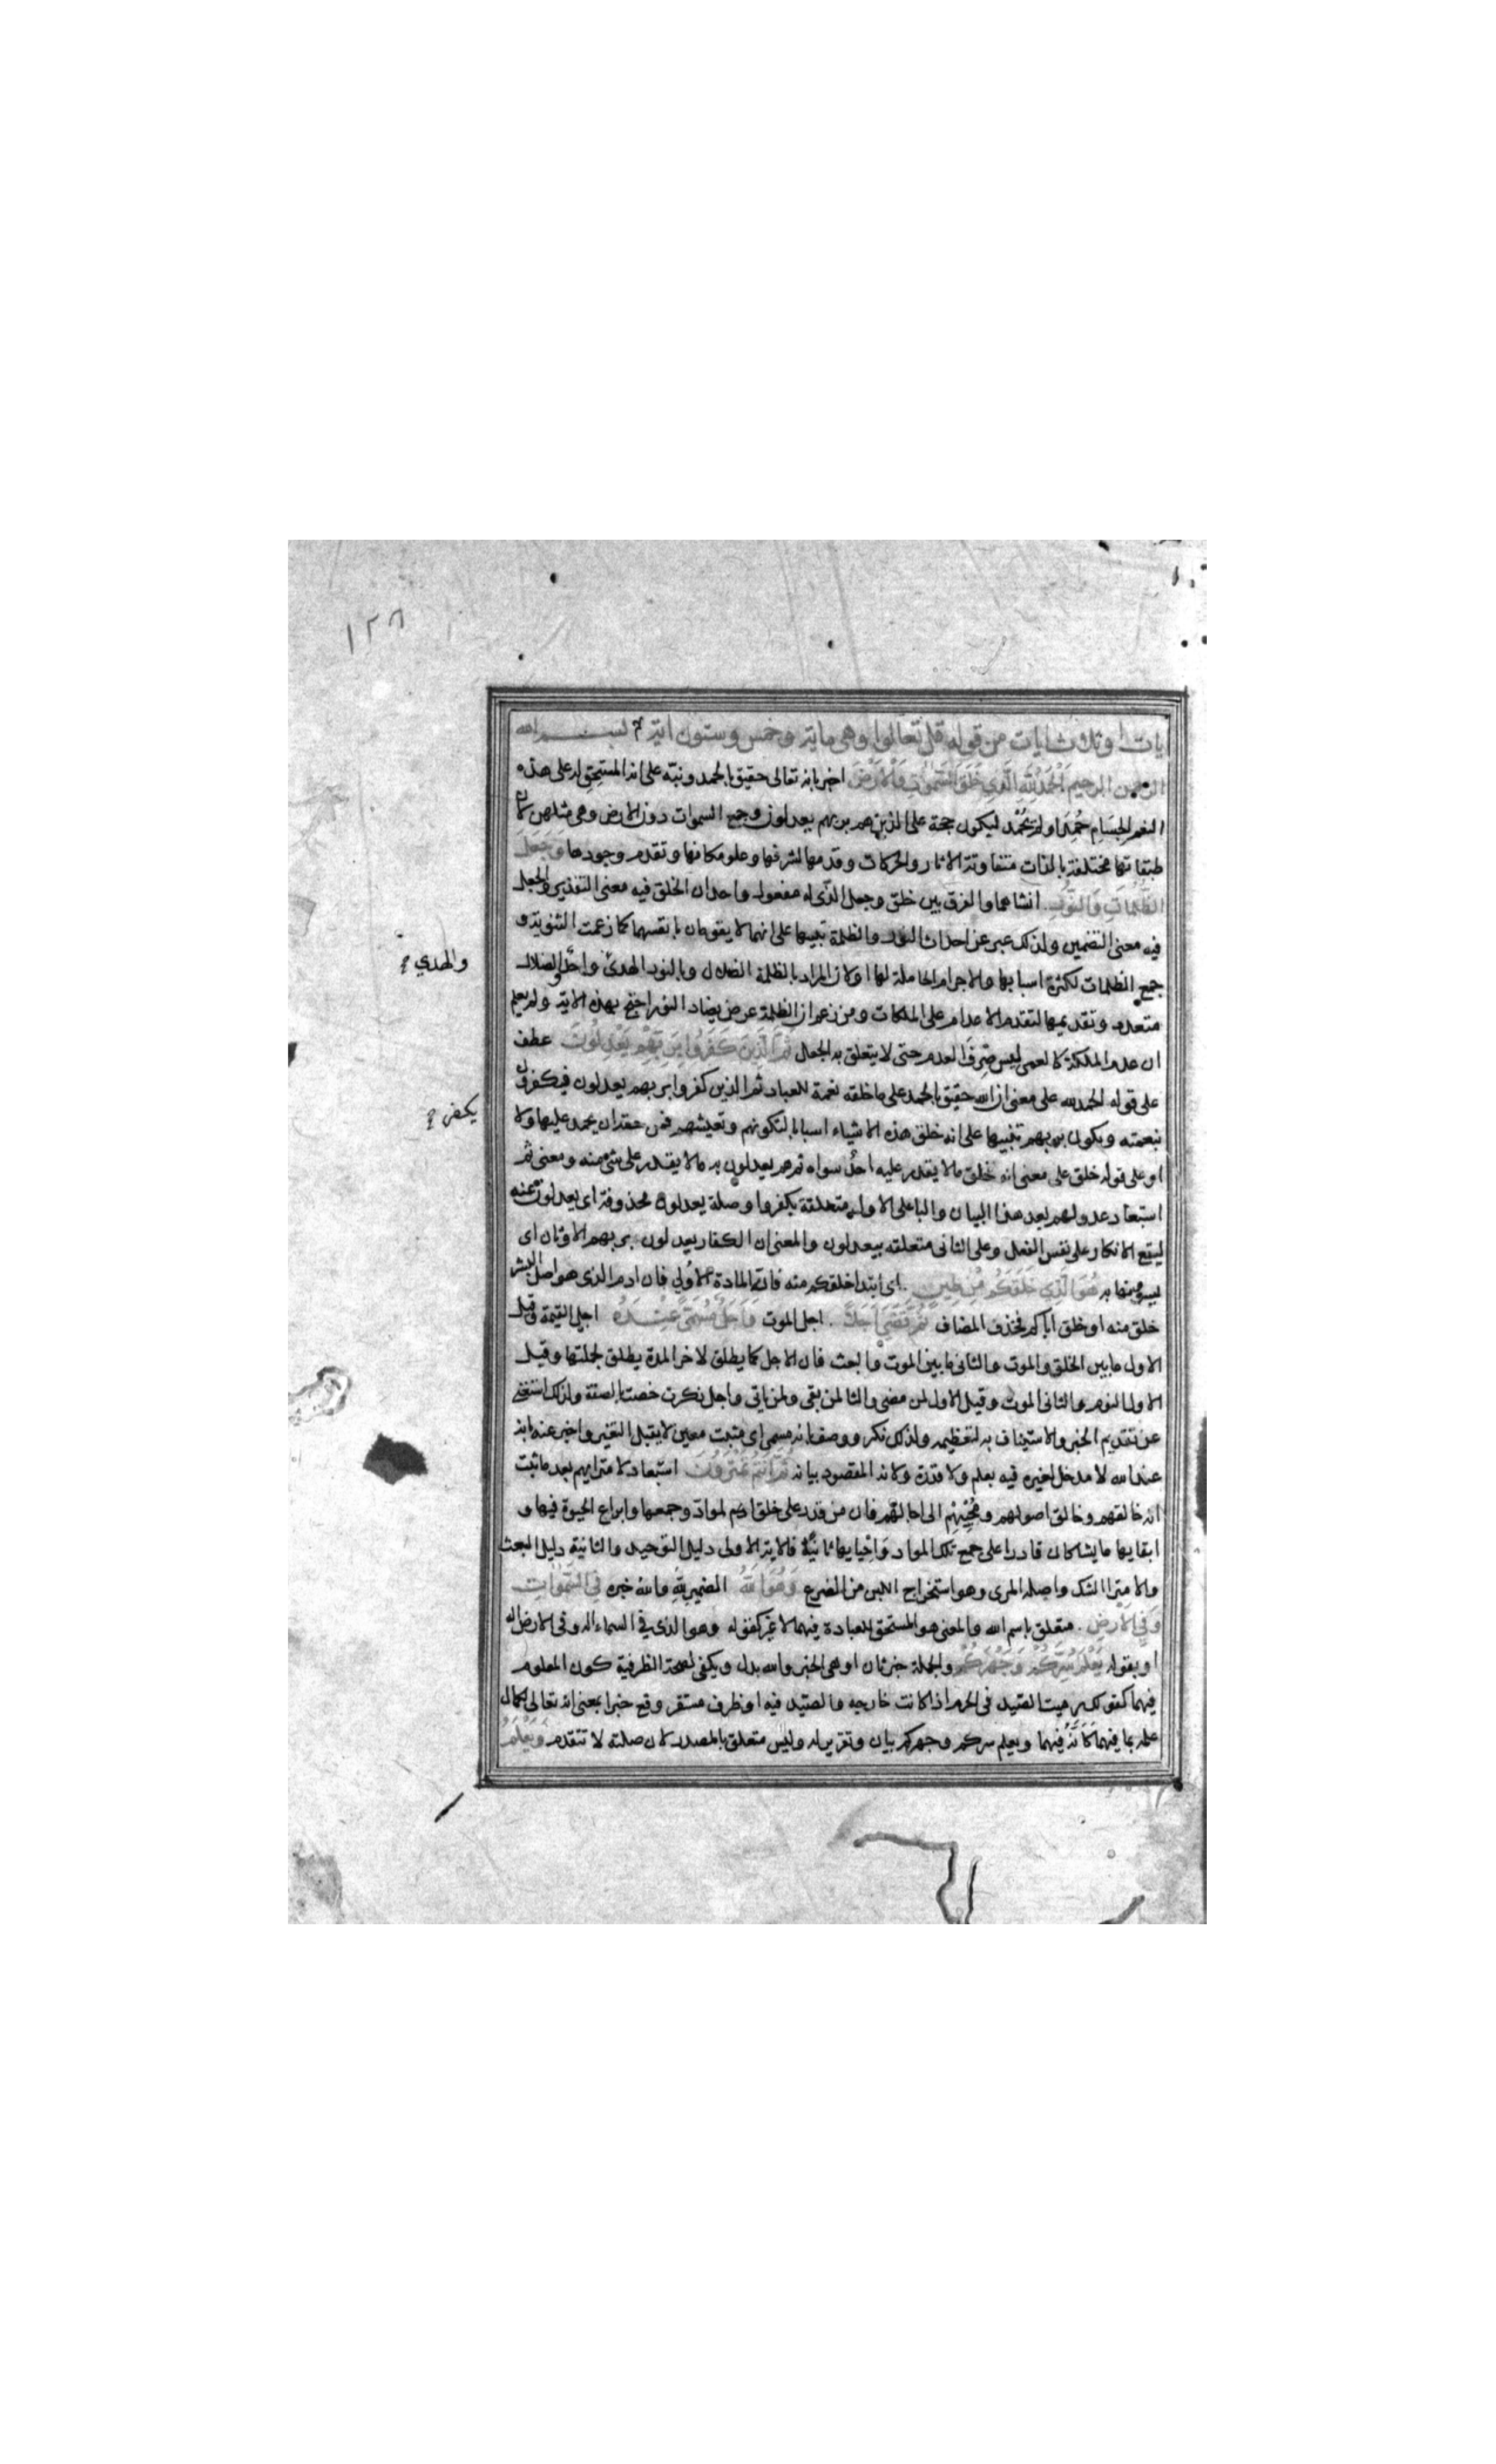 ١٢٨
يات او ثلث ايات من قوله قل تعالوا وهي ماية وخمس وستون اية بسم الله
الرحمن الرحيم الحمد لله الذي خلق السموات والارض اخبر بانه تعالى حقيق بالحمد ونبه على انه المستحق له على هذه
النعم الجسام حمد او لم يحمد ليكون حجة على الذين هم بربهم يعدلون وجمع السموات دون الارض وهي مثلهن لان
طبقاتها مختلفة بالذات متفاوتة الاثار والحركات وقدمها لشرفها وعلو مكانها وتقدم وجودها وجعل
الظلمات والنور انشاهما والفرق بين خلق وجعل الذي له مفعول واحد ان الخلق فيه معنى التقدير والجعل
فيه معنى التضمين ولذلك عبر عن احداث النور والظلمة تنبيها على انهما لا يقومان بانفسهما كما زعمت الثنوية و
جمع الظلمات لكثرة اسبابها والاجرام الحاملة لها او لان المراد بالظلمة الضلال وبالنور الهدى واحد والضلال
والهدي
متعدد وتقديمها لتقدم الاعدام على الملكات ومن زعم ان الظلمة عرض يضاد النور احتج بهذه الاية ولم يعلم
ان عدم الملكة كالعمى ليس صرف العدم حتى لا يتعلق به الجعل ثم الذين كفروا بربهم يعدلون عطف
على قوله الحمد لله على معنى ان الله حقيق بالحمد على ما خلقه نعمة للعباد ثم الذين كفروا بربهم يعدلون فيكفرون
يكفر
نعمته ويكون بربهم تنبيها على انه خلق هذه الاشياء اسبابا لتكونهم وتعيشهم فمن حقه ان يحمد عليها ولا
او على قوله خلق على معنى انه خلق ما لا يقدر عليه احد سواه ثم هم يعدلون به ما لا يقدر على شئ منه ومعنى ثم
استبعاد عدولهم بعد هذا البيان والبا على الاول متعلقة بكفروا وصلة يعدلون محذوفة اى يعدلون عنه
ليقع الانكار على نفس الفعل وعلى الثانى متعلقه بيعدلون والمعنى ان الكفار يعدلون بربهم الاوثان اى
يسوونها به هو الذي خلقكم من طين اى ابتدا خلقكم منه فانه المادة الاولي فان ادم الذى هو اصل البشر
خلق منه او خلق اباكم فحذف المضاف ثم قضي اجلا اجل الموت واجل مسمى عنده اجل القيمة وقيل
الاول ما بين الخلق والموت والثانى ما بين الموت والبعث فان الاجل كما يطلق لاخر المدة يطلق لجملتها وقيل
الاول النوم والثانى الموت وقيل الاول لمن مضى والثا لمن بقى ولمن ياتى واجل نكرت خصت بالصفة ولذلك استغنى
عن تقديم الخبر والاستيناف به لتعظيمه ولذلك نكر ووصف بانه مسمى اى مثبت معين لا يقبل التغير واخبر عنه بانه
عند الله لا مدخل لغيره فيه بعلم ولا قدرة ولانه المقصود بيانه ثم انتم تمترون استبعاد لامترايهم بعد ما ثبت
انه خالقهم وخالق اصولهم ومحييهم الى اجالهم فان من قدر على خلق المواد وجمعها وابداع الحيوة فيها و
ابقايها ما يشا كان قادرا على جمع تلك المواد واحيايها ثانيا فالاية الاولى دليل التوحيد والثانية دليل البعث
والامترا الشك واصله المرى وهو استخراج اللبن من الضرع وهو الله الضمير لله والله خبره في السموات
وفي الارض متعلق باسم الله والمعنى هو المستحق للعبادة فيهما لا غير كقوله وهو الذى في السماء اله وفى الارض اله
او بقوله يعلم سركم وجهركم والجملة خبر ثان او هى الخبر والله بدل ويكفى لصحة الظرفية كون المعلوم
فيهما كقولك رميت الصيد فى الحرم اذا كانت خارجه والصيد فيه او ظرف مستقر وقع خبرا بمعنى انه تعالى لكمال
علمه بما فيهما كانه فيهما ويعلم سركم وجهركم بيان وتقرير له وليس متعلق بالمصدر لان صلته لا تتقدم ويعلم